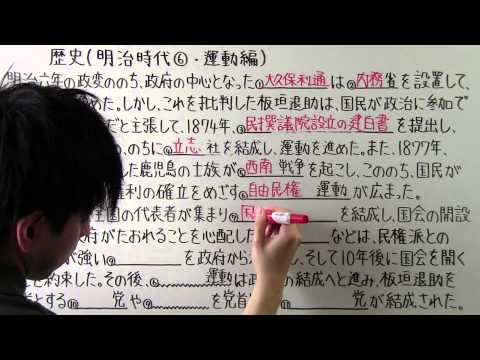 歴史(明治時代⑥・運動編)
明治六年の政変ののち、政府の中心となった①大久保利通は②内務省を設置して、
めた。しかし、これを批判した板垣退助は、国民が政治に参加で
だと主張して、1874年、③民撰議院設立の建白書を提出し、
のちに④立志社を結成し、運動を進めた。また、1877年、
した鹿児島の士族が⑤西南戦争を起こし、こののち、国民が
権利の確立をめざす⑥自由民権運動が広まった。
全国の代表者が集まり⑦ を結成し、国会の開設
政府がたおれることを心配した などは、民権派との
が強い を政府から そして10年後に国会を開く
と約束した。その後、 運動は政 の結成へと進み、板垣退助を
とする 党や を党首 党が結成された。